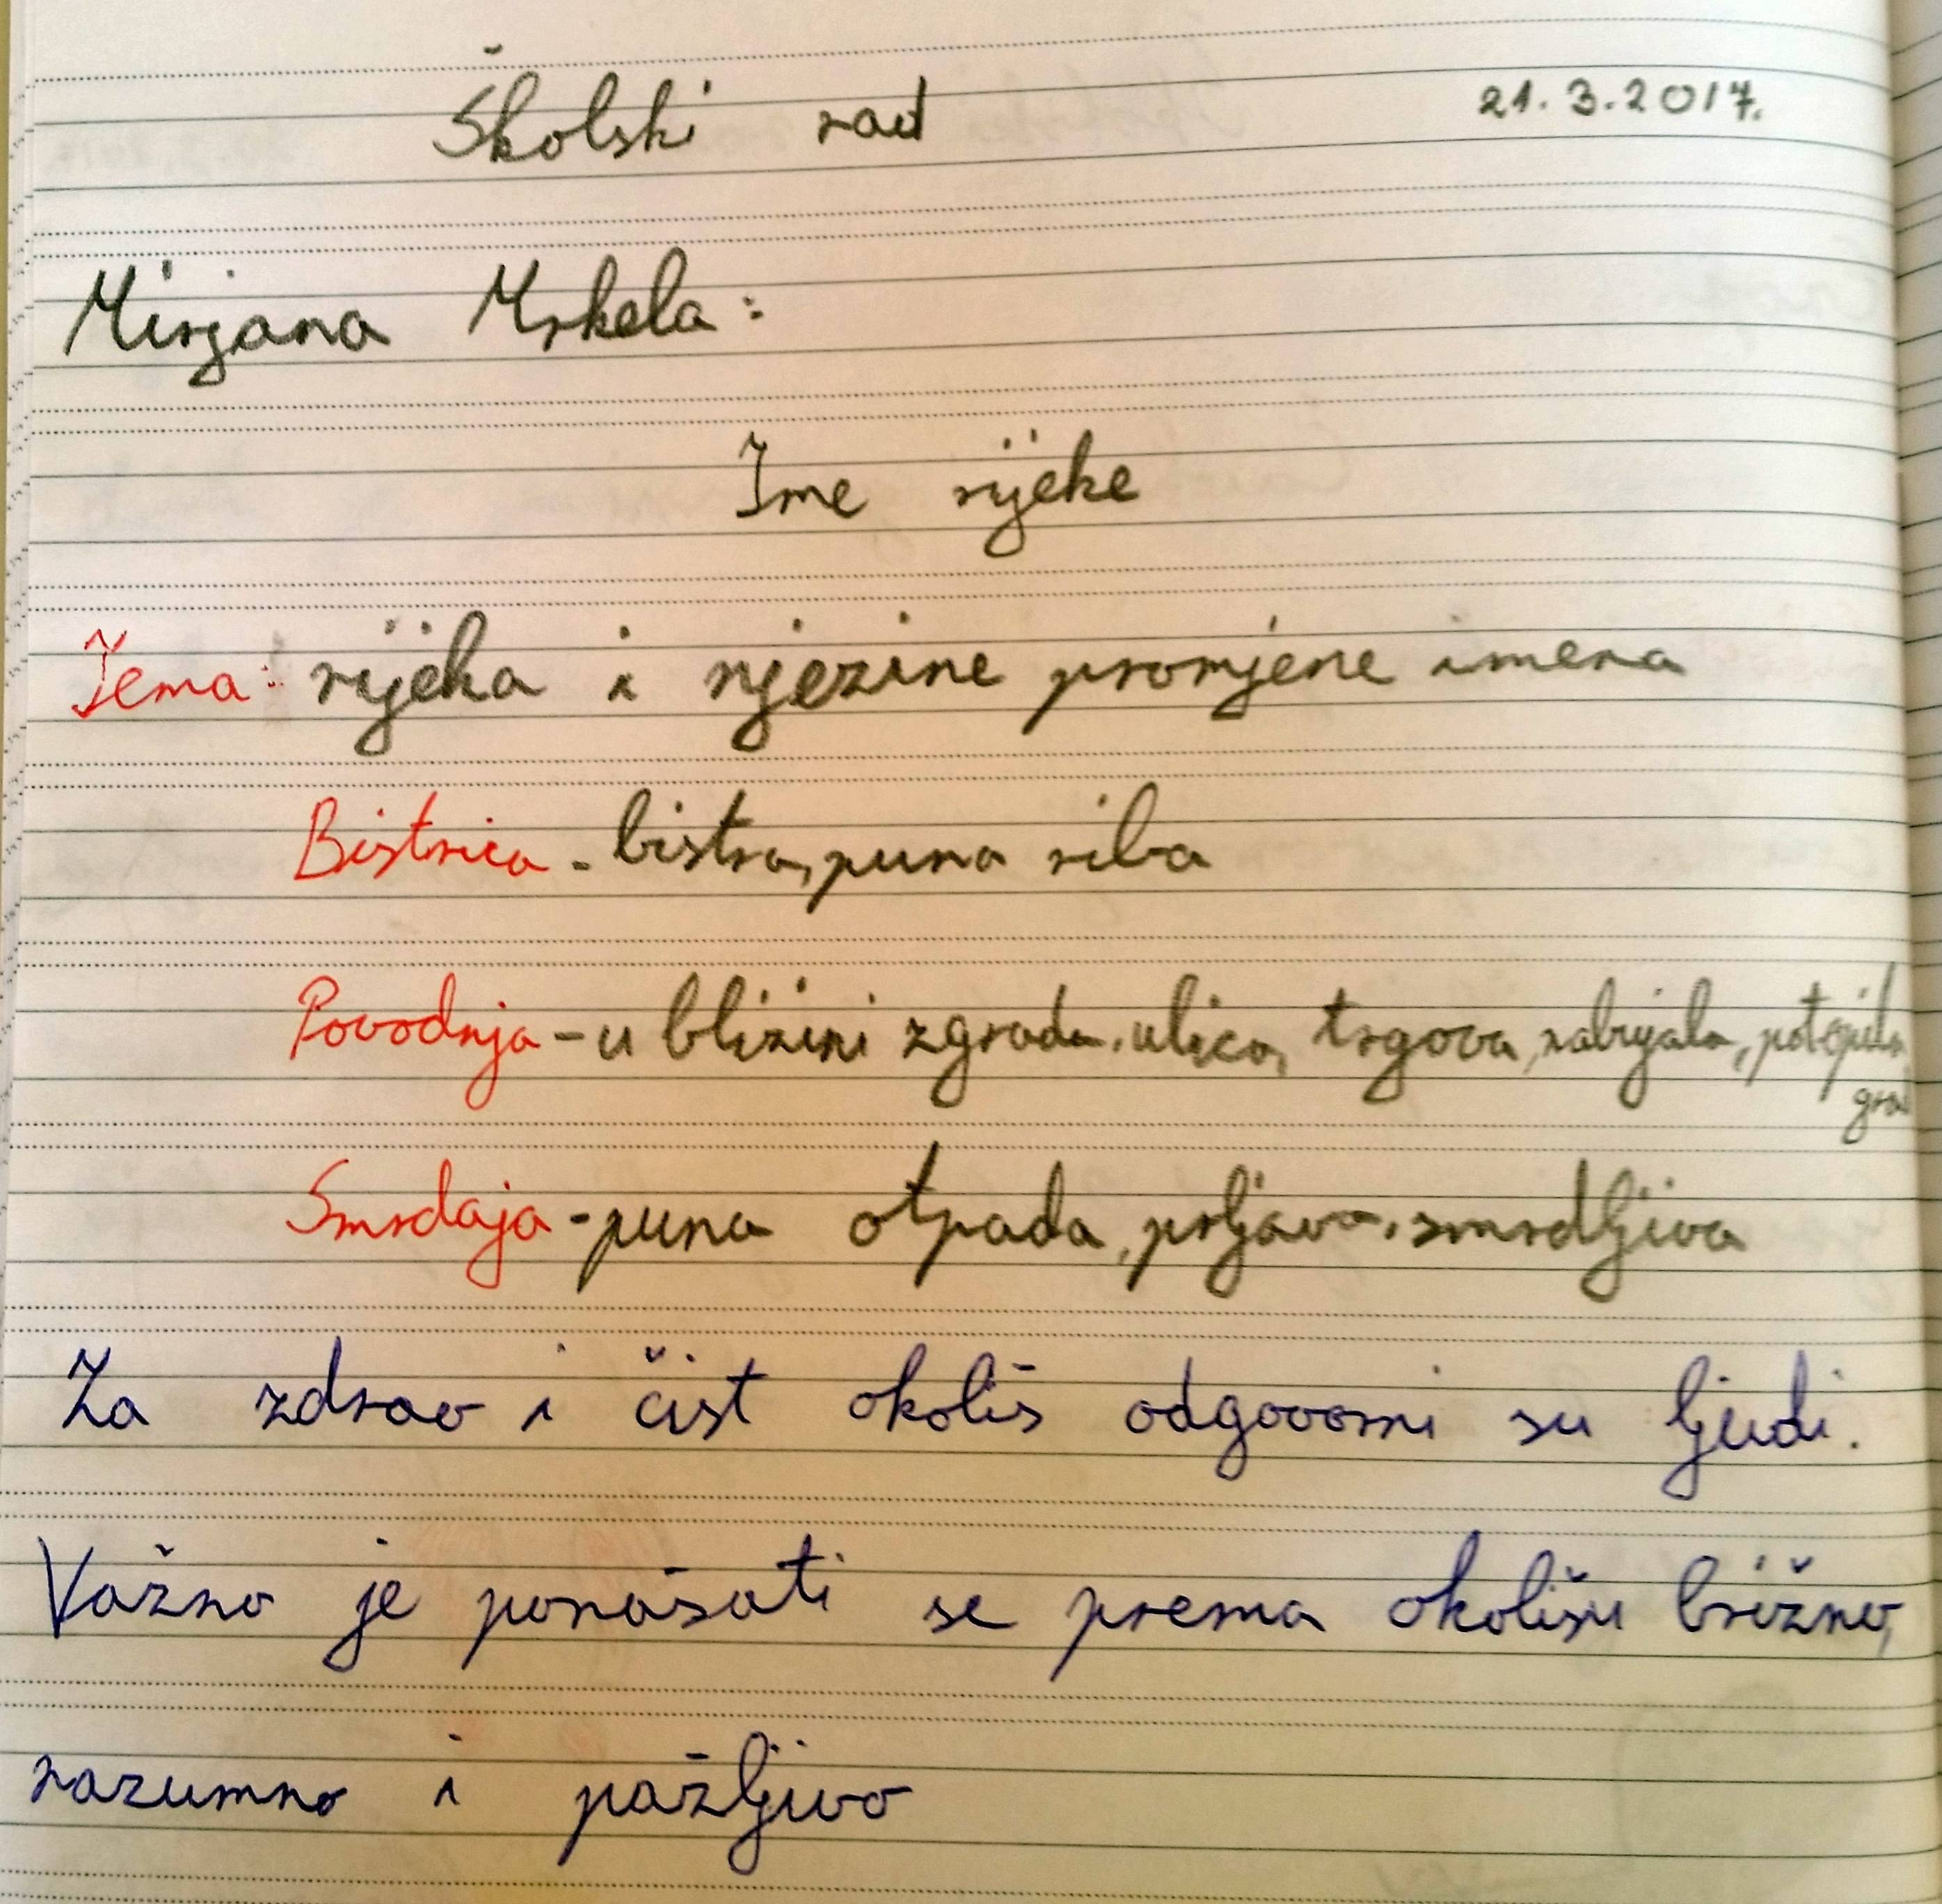 Školski rad 21.3.2017.
Mirjana Mrkela:
Ime rijeke
Tema: rijeka i njezine promjene imena
Bistrica - bistra, puna riba
Povodnja - u blizini zgrada, ulica, trgova, nabrijala, potopila
grad
Smrdaja - puna otpada, prljava, smrdljiva
Za zdrav i čist okoliš odgovorni su ljudi.
Važno je ponašati se prema okolišu brižno,
razumno i pažljivo